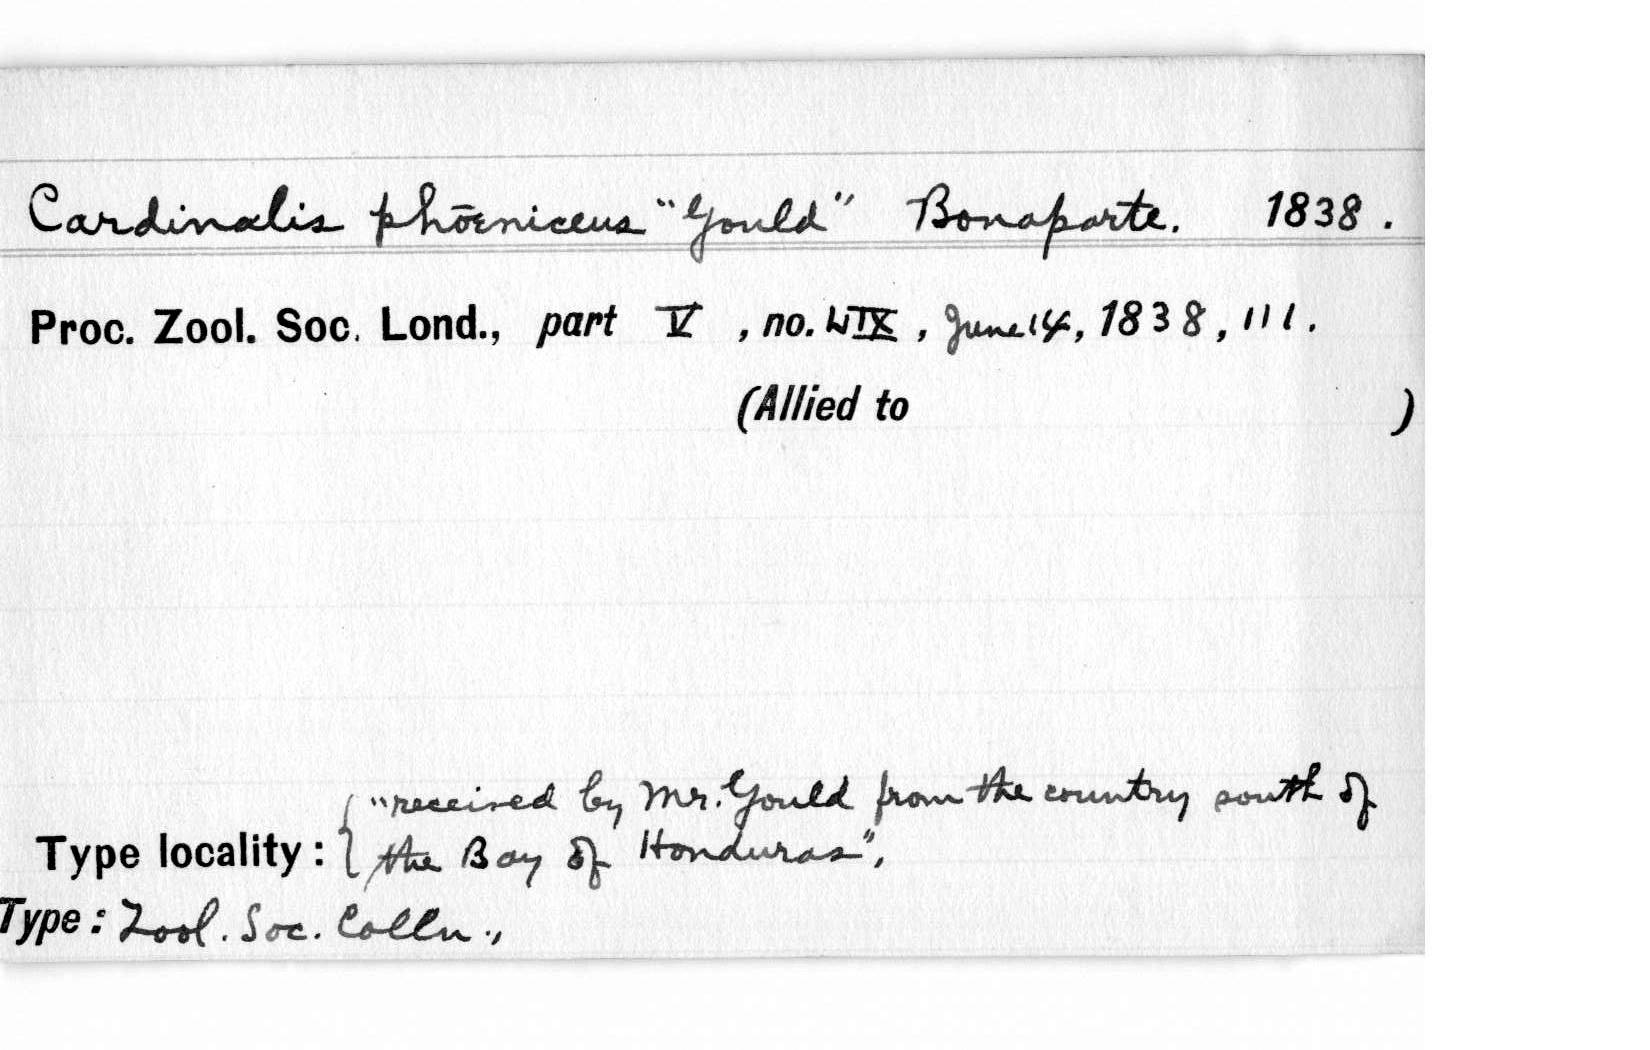 Cardinalis phœniceus "Gould" Bonaparte. 1838.
Proc. Zool. Soc. Lond., part V, no. LIX, June 14, 1838, 111.
(Allied to )
"received by Mr. Gould from the country south of
Type locality: the Bay of Honduras",
Type: Zool. Soc. Colln.,